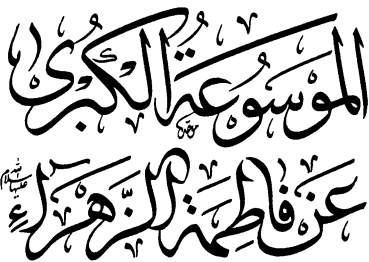 الموسوعة الكبرى
عن فاطمة الزهراء عليها السلام